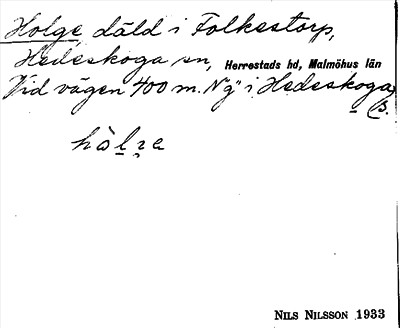 Holge, däld i Folkestorp,
Hedeskoga sn, Herrestads hd, Malmöhus län
Vid vägen 400 m. N g i Hedeskoga
B.
hålze
NILS NILSSON 1933